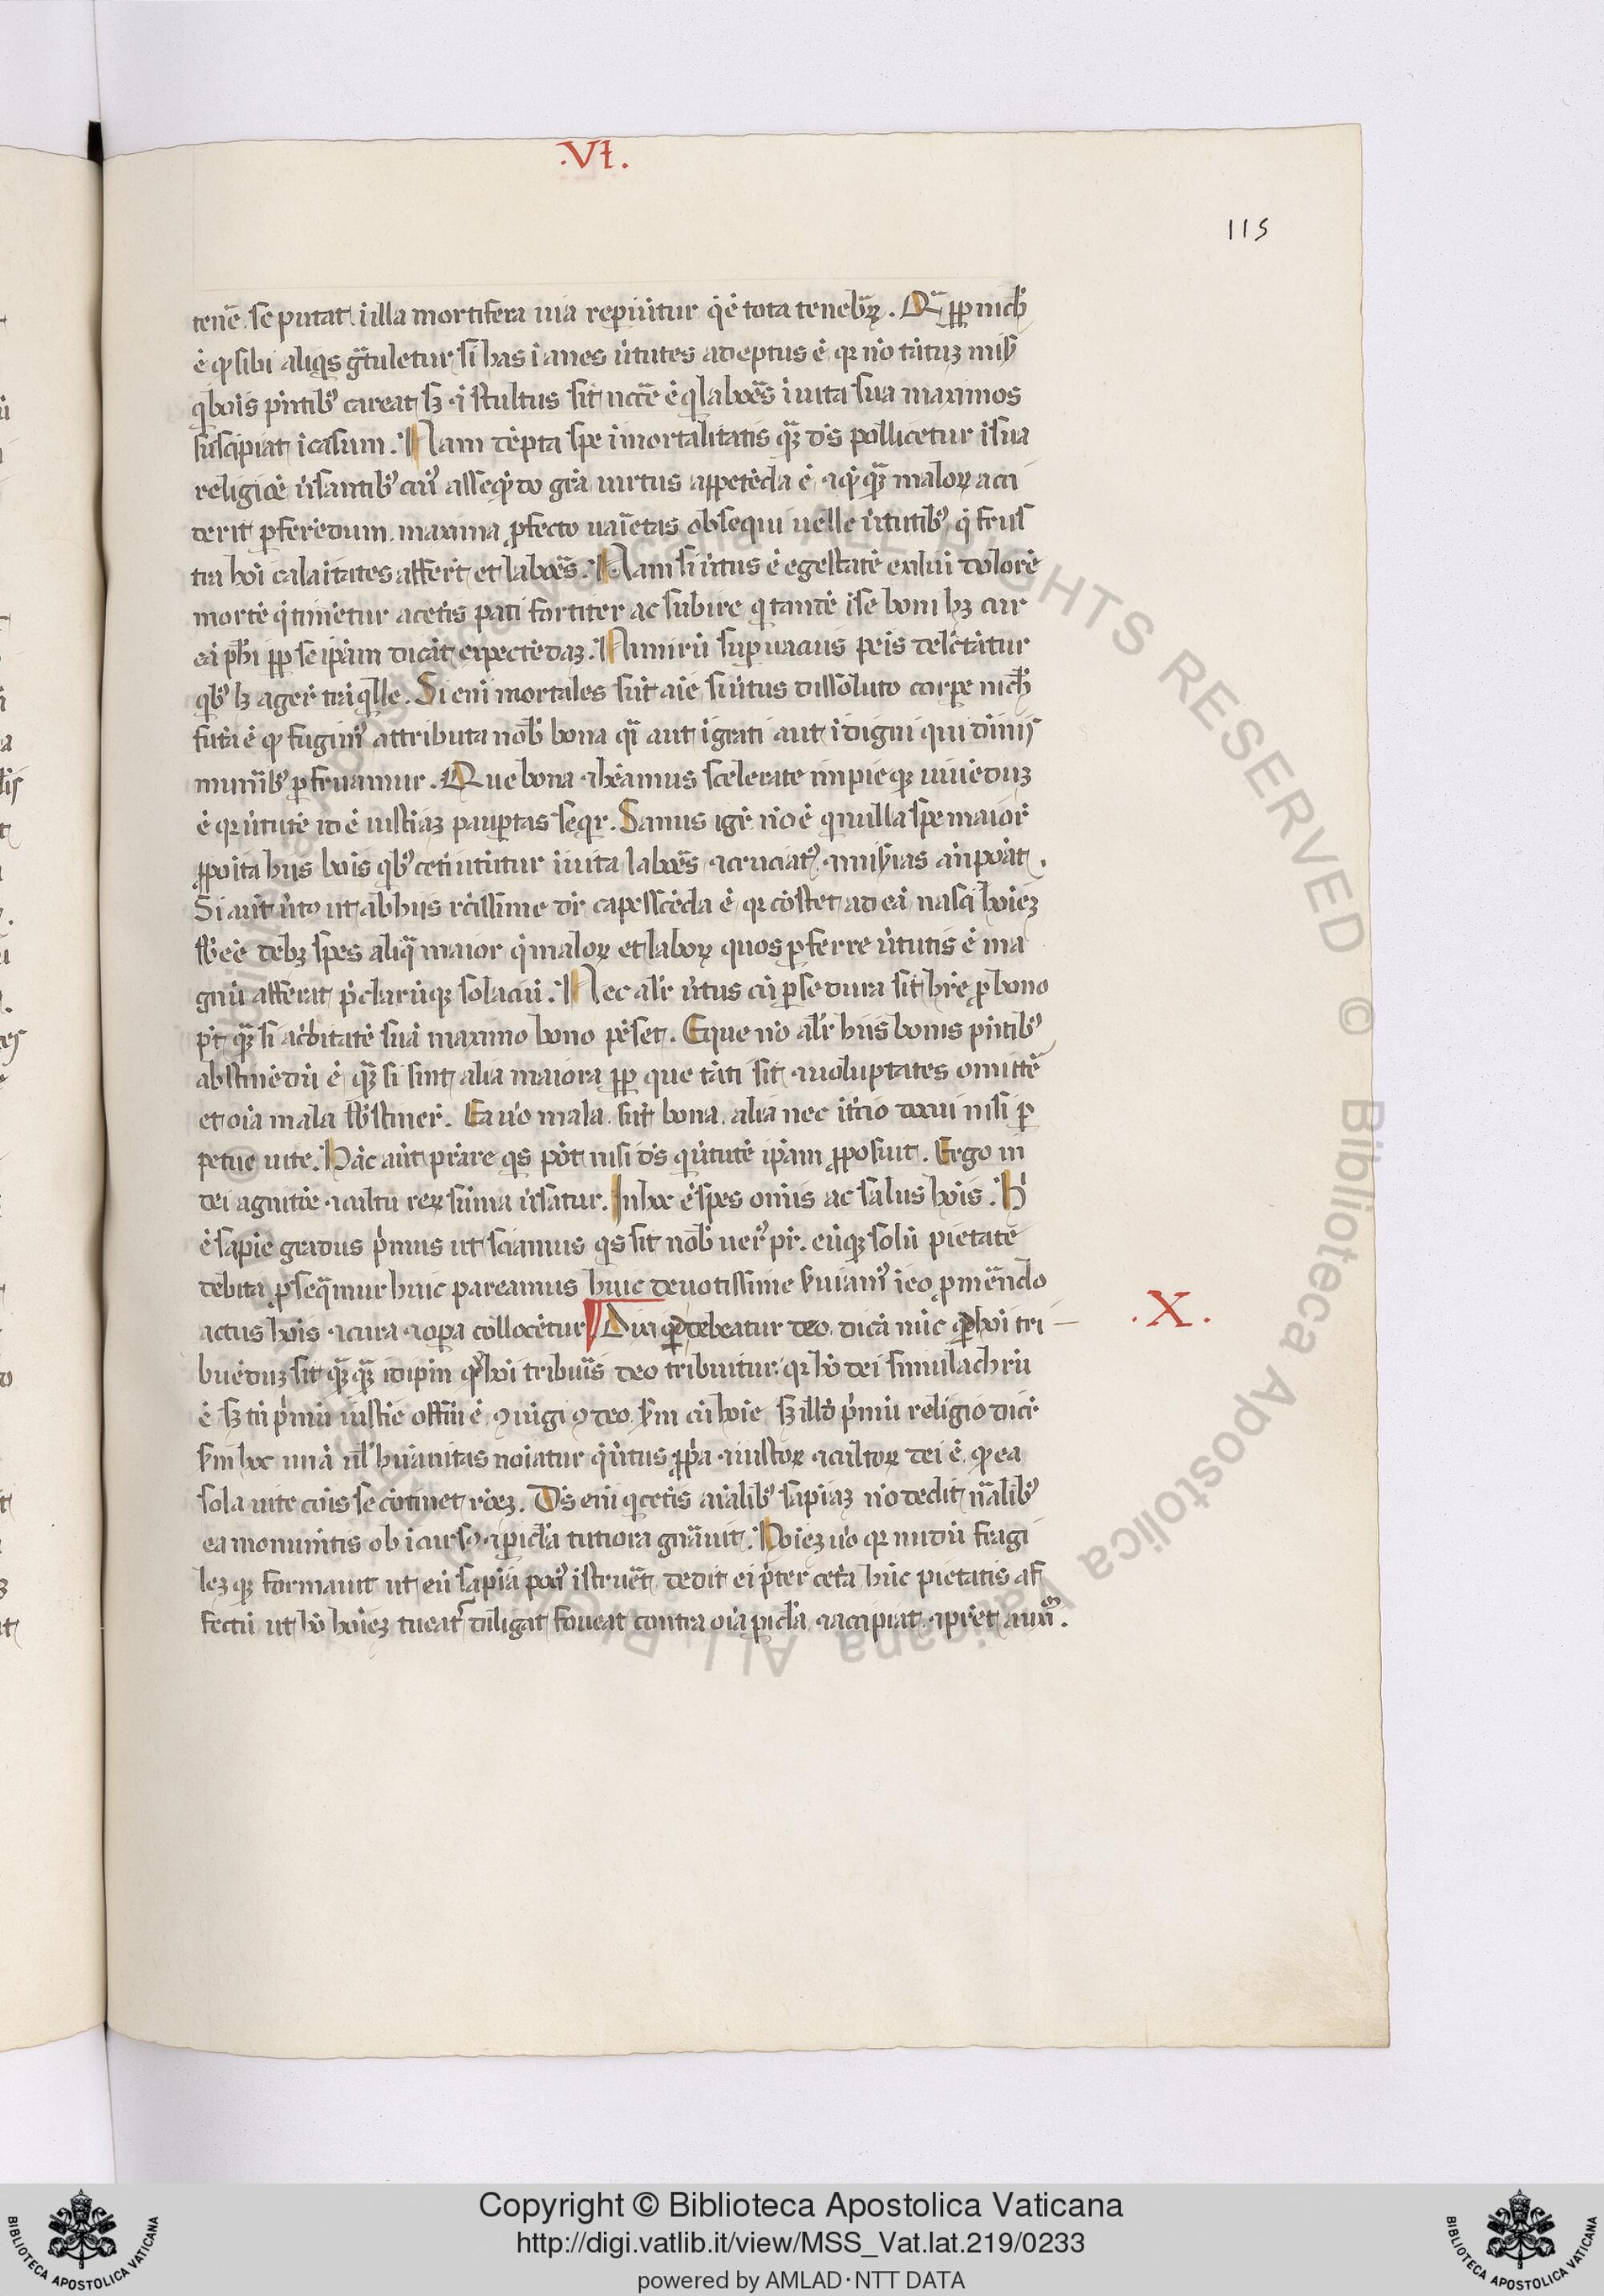 .VI.
115
tenē se putat illa mortifera uia reperiītur q̇ ē tota tenebꝝ. Q̄ ꝓp nich̄
ē ꝙ sibi aliqͥs gr̄tuletur si has ianes ūtutes adeptus ē qꝛ nō tātuꝫ misꝭ
q bōis pn̄tibꝰ careat sꝫ ⁊ i stultus sit nccē ē q labores i uita sua maximos
suscipiat icasum. Nam dēpta spe imortalitatis quā ds̄ pollicetur i sua
religiōe ūsantibꝰ cuiꝰ asseqͥdo grā uirtus appetēda ē ⁊ qͥcqͥd maloꝝ acci
derit ꝑferēdum. maxima ꝓfecto uanetas obsequi uelle ūtutibꝰ q̄ frus
tra hōi calaitates affert et labores. Nam si ūtus ē egestatē exilii dolorē
mortē q̄ timētur a cetis pati fortiter ac subire q tandē i se boni hꝫ cur
eā phi ꝓp se ipām dicāt expectēdaꝫ. Nimirū supuacuis penis delectātur
qͥbꝰ lꝫ agere trāqͥlle. Si eni mortales sūt aīe si ūtus dissoluto corpe nich̄
futa ē ꝙ fugimꝰ attributa nob̄ bona qͥ aut igrati aut idigni qui diuis
munibꝰ ꝑfruamur. Que bona ⁊ hēamus scelerate impieqꝫ uiuēduꝫ
ē qꝛ ūtutē id ē iustiaꝫ paupertas seqͥr. Sanus igr̄ nō ē q nulla spe maiore
ꝓpoita hiis bōis qͥbꝰ ceti utūtur i uita labores ⁊ cruciatꝰ ⁊ misias anpōat.
Si aūt ūtꝰ ut ab hiis rctissime dr̄ capessēda ē qꝛ cōstet ad eā nasci hoieꝫ
sb̄ēē debꝫ spes aliq̄ maior q̄ maloꝝ et laboꝝ quos ꝑferre ūtutis ē ma
gnū afferat p̄clarūqꝫ solaciū. Nec alr̄ ūtus cū ꝑ se dura sit hr̄i ꝓ bono
pt̄ quā si acbitatē suā maximo bono pēset. Eque nō alr̄ hiis bonis pn̄tibꝰ
abstinēdū ē quā si sint alia maiora ꝓp que tāti sit ⁊ uoluptates omittē
et oīa mala sb̄stinere. Ea ūo mala sūt bona alia nec it̄cio docui nisi ꝑ
petue uite. Hāc aūt prāre qͥs pōt nisi ds̄ q ūtutē ipām ꝓposuit. Ergo in
dei agnitiōe ⁊ cultu reꝝ sūma ūsatur. In hoc ē spes omīs ac salus hōis. H̄
ē sapiē gradus pͥmus ut sciamus qͥs sit nob̄ uerꝰ pr̄. eūqꝫ solū pietate
debita ꝓseqͣmur huic pareamus huic deuotissime sūiamꝰ i eo ꝓmēndo
actus hōis ⁊ cura ⁊ opa collocētur. Dixi qd̄ debeatur deo. dicā nūc qd̄ hōi tri
.X.
buēduꝫ sit quāquā id ipm qd̄ hōi tribuis deo tribuitur. qꝛ hō dei simulachrū
ē sꝫ tn̄ pͥmū iustie offm̄ ē ꝯiūgi ꝯ deo. sm̄ cū hoie. sꝫ illd̄ pͥmū religio dicir
sm̄ hoc mīa ul̄ hūanitas noiatur q̄ ūtus ꝓpa ⁊ iustoꝝ ⁊ cultoꝝ dei ē. ꝙ ea
sola uite cōis se cōtinet rōeꝫ. Ds̄ eni q cetis aīalibꝰ sapiaꝫ nō dedit nālibꝰ
ea monumtis ob icursꝰ ⁊ picla tutiora gnāuit. Hoieꝫ ūo qꝛ nudū fragi
leꝫqꝫ formauit ut eū sapiā potꝰ istruēt. dedit ei pͥter ceta hūc pietatis af
fectū ut hō hoieꝫ tueatʳ diligat foueat contra oīa picla ⁊ accipiat ⁊ pret auxm̄.
Copyright © Biblioteca Apostolica Vaticana
http://digi.vatlib.it/view/MSS_Vat.lat.219/0233
powered by AMLAD · NTT DATA
BIBLIOTECA APOSTOLICA VATICANA
BIBLIOTECA APOSTOLICA VATICANA